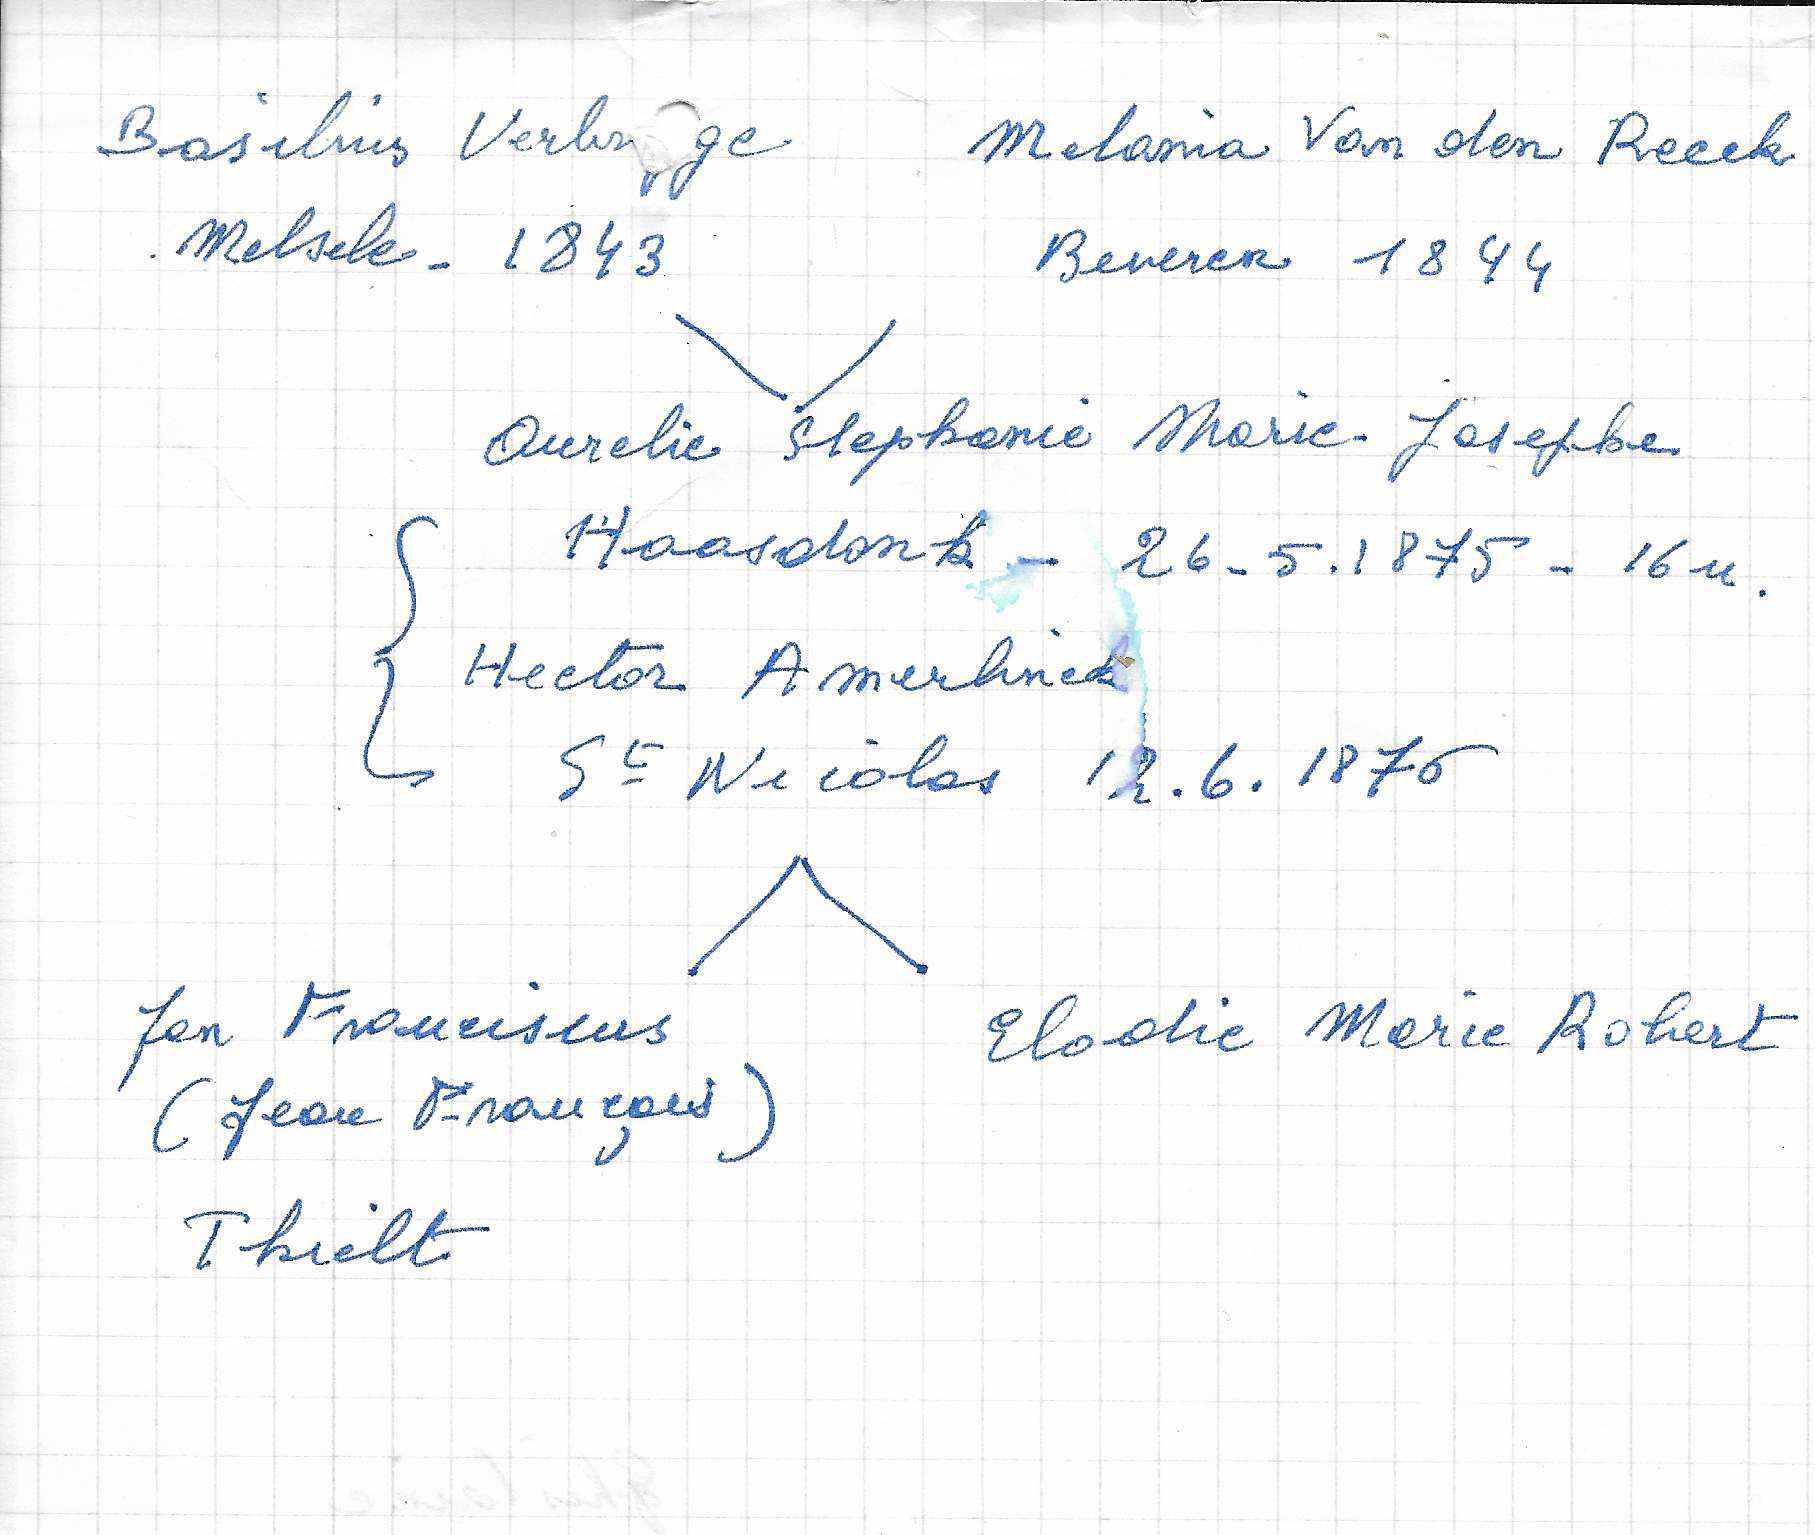 Basilius Verbr ge Melania Van den Reeck
Melsele - 1843 Beveren 1844
Aurelie Stephanie Marie-Josephe
Haasdonk - 26-5.1875 - 16 u.
Hector Amerlinck
St Nicolas 12.6.1876
Jan Franciscus Elodie Marie Robert
(Jean François)
Thielt